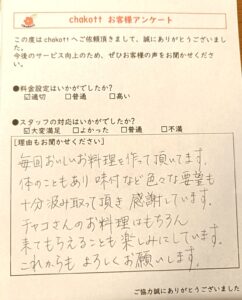 chakott お客様アンケート
この度はchakottへご依頼頂きまして、誠にありがとうございました。
今後のサービス向上のため、ぜひお客様の声をお聞かせください。
●料金設定はいかがでしたか？
☑適切 □普通 □高い
●スタッフの対応はいかがでしたか？
☑大変満足 □よかった □普通 □不満
【理由もお聞かせください】
毎回おいしいお料理を作って頂いてます。
体のこともあり 味付など色々な要望も
十分汲み取って頂き 感謝しています。
チャコさんのお料理はもちろん
来てもらえることも楽しみにしています。
これからも よろしくお願いします。
ご協力誠にありがとうございました